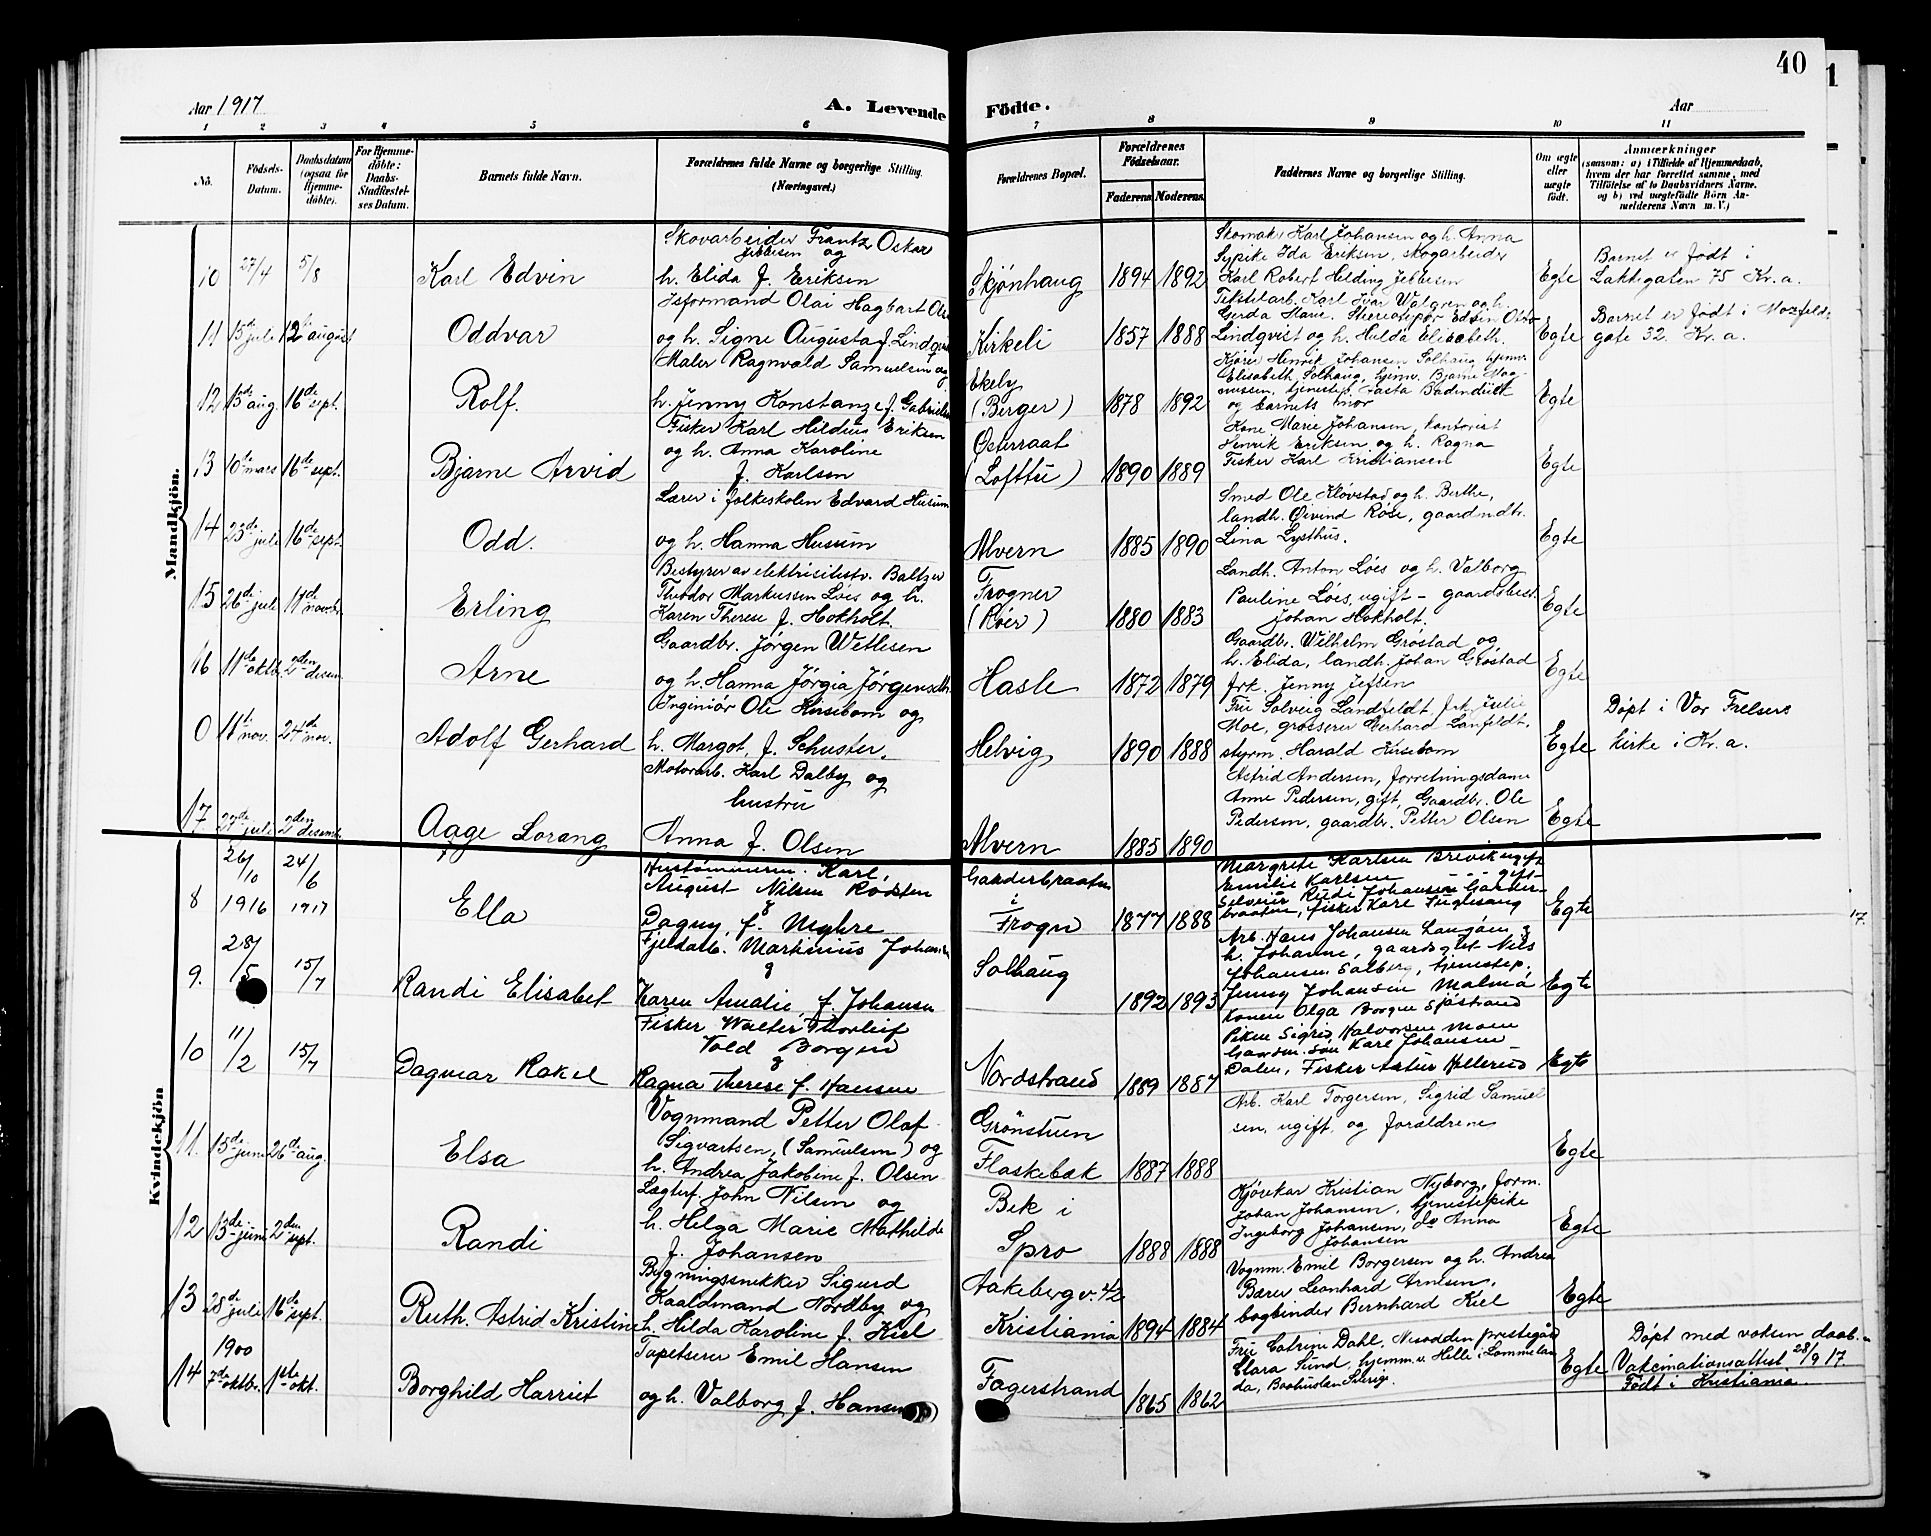 40
Aar 1917
A. Levende
Födte.
Aar
1 2 3 4 5 6 7 8 9 10 11
No.
Födsels-
Datum.
Daabsdatum
(ogsaa for
Hjemme-
döbte).
For Hjemme-
döbte:
Daabs-
Stadfæstel-
ses Datum.
Barnets fulde Navn.
Forældrenes fulde Navne og borgerlige Stilling.
(Næringsvei.)
Forældrenes Bopæl.
Forældrenes
Födselsaar.
Faderens.
Moderens.
Faddernes Navne og borgerlige Stilling.
Om ægte
eller
uægte
födt.
Anmærkninger
(saasom: a) i Tilfælde af Hjemmedaab,
hvem der har forrettet samme, med
Tilföielse af to Daabsvidners Navne.
og b) ved uægtefödte Börn An-
melderens Navn m. V.)
Mandkjön.
10 27/4 5/8 Karl Edvin
Skovarbeider Frantz Oskar
Jebbesen og
h. Elida f. Eriksen
Skjønhaug 1894 1892
Skomak. Karl Johansen og h. Anna
Sypike Ida Eriksen, skogarbeider
Karl Robert Hilding Jebbesen
Egte
Barnet er født i
Lakkegaten 75 Kr.a.
11 15de juli 12te august Oddvar
Isformand Olai Hagbart
og h. Signe Augusta f. Lindqvist
Kirkeli 1857 1888
Tekstilarb. Karl Ivar Walgren og h.
Gerda Marie. Stereotipør Edvin Otto
Lindqvist og h. Hulda Elisabeth.
Egte
Barnet er født i
gate 32. Kr.a.
12 13de aug. 16de sept. Rolf.
Maler Ragnvald Samuelsen og
h. Jenny Konstanze f. Gabrielsen
Ekely
(Berger) 1878 1892
Kjører Henrik Johansen Solhaug, hjemv.
Elisabeth Solhaug, hjemv. Bjarne Mag
nussen, tjenestep.
og barnets mor
Egte
13 10de mars 16de sept. Bjarne Arvid
Fisker Karl Hildius Eriksen
og h. Anna Karoline
f. Karlsen
Østeraat
(Lofttu) 1890 1889
Kone Marie Johansen, kontorist
Henrik Eriksen og h. Ragna
Fisker Karl Kristiansen
Egte
14 23de juli 16de sept. Odd.
Lærer i folkeskolen Edvard Husum
og h. Hanna Husum
Alvern 1885 1890
Smed Ole Kløvstad og h. Berthe,
landh. Øivind Röse, gaardmdtr.
Lina Lysthus.
Egte
15 26de juli 11de novbr. Erling
Bestyrer av elektrisitetsv. Baltzer
Theodor Markussen Löes og h.
Karen Therese f. Hokholt.
Frogner
(Röer) 1880 1883
Landh. Anton Löes og h. Valborg
Pauline Löes, ugift - gaardbest.
Johan Hokholt.
Egte
16 11te oktbr. 2den desem. Arne
Gaardbr. Jørgen Wetlesen
og h. Hanna Jörgia Jörgenseth
Hasle 1872 1879
Gaardbr. Wilhelm Gröstad og
h. Elida, landh. Johan Gröstad
frk. Jenny Jensen
Egte
0 11te nov. 24de nov. Adolf Gerhard
Ingeniør Ole Kirsebom og
h. Margot f. Schuster.
Helvig 1890 1888
Frue Solveig Landfeldt, frk. Julie
Moe, grosserer Gerhard Lanfeldt,
styrm. Harald Kirsebom
Egte
Døpt i Vor Frelsers
kirke i Kr.a.
17 27de juli 2den desemb. Aage Lorang
Motorarb. Karl Dalby og
hustru
Anna f. Olsen
Alvern 1885 1890
Astrid Andersen, forretningsdame
Anne Pedersen, gift, Gaardbr. Ole
Pedersen, gaardbr. Petter Olsen
Egte
Kvindekjön
8 26/10 1916 24/6 1917 Ella
Hustømmerm. Karl
August Nilsen Rodsten
&
Dagny, f. Myhre
Ganderbraaten
i
Frogn 1877 1888
Margrete Karlsen Brevik ugift
Emilie Karlsen - - gift -
Selveier Rudi Johansen Gander-
braaten, fisker Karl Fuglesang
Egte
9. 28/5 15/7 Randi Elisabet
Fjeldarb. Martinius Johansen
&
Karen Amalie, f. Johansen
Solhaug
1892 1893
Arb. Hans Johansen Langåen &
h. Johanne, gaardsgut Nils
Johansen Salberg, tjenestep.
Jenny Johansen Malmö
Egte
10 11/2 15/7 Dagmar Rakel
Fisker Walter Thorleif
Vold Borgen
&
Ragna Therese f. Hansen
Nordstrand 1889 1887
Konen Olga Borgen Spöstrand
Piken Sigrid Halvorsen Moen
Gaardm. søn Karl Johansen
Dalen, Fisker Astur Hellerud
Egte
11. 15de juni 26de aug. Elsa
Vognmand Petter Olaf
Sigvartsen, (Samuelsen) og
h. Andrea Jakobine f. Olsen
Grönstuen
Flaskebæk 1887 1888
Arb. Karl Torgersen, Sigrid Samuel
sen, ugift, og forældrene
Egte
12 13de juni 2den sept. Randi
Lægterf. John Nilsen og
h. Helga Marie Mathilde
f. Johansen
Bek i
Spro 1888 1888
Kjørekar Kristian Nyborg, form.
Johan Johansen, tjenestepike
Ingeborg Johansen, do Anna
Johansen
Egte
13 28de juli 16de sept. Ruth. Astrid Kristine
Bygningssnekker Sigurd
Kaaldmand Nordby og
h. Hilda Karoline f. Kiel
Aakebergv. 42
Kristiania 1894 1884
Vognm. Emil Borgersen og h. Andrea
Bærer Leonhard Arnesen,
bogbinder Bernhard Kiel
Egte
14 1900 7de oktbr. 1ste okt. Borghild Harriet
Tapetserer Emil Hansen
og h. Valborg f. Hansen
Fagerstrand 1865 1862
Frue Catrine Dahl, Nesodden prestegård
Clara Sund, hjemm. v. Helle i Lommelan
da, Baahuslen Sverig.
Egte
Døpt med voksen daab.
Vakcinationsattest 28/9 17
Født i Kristiania.
17.